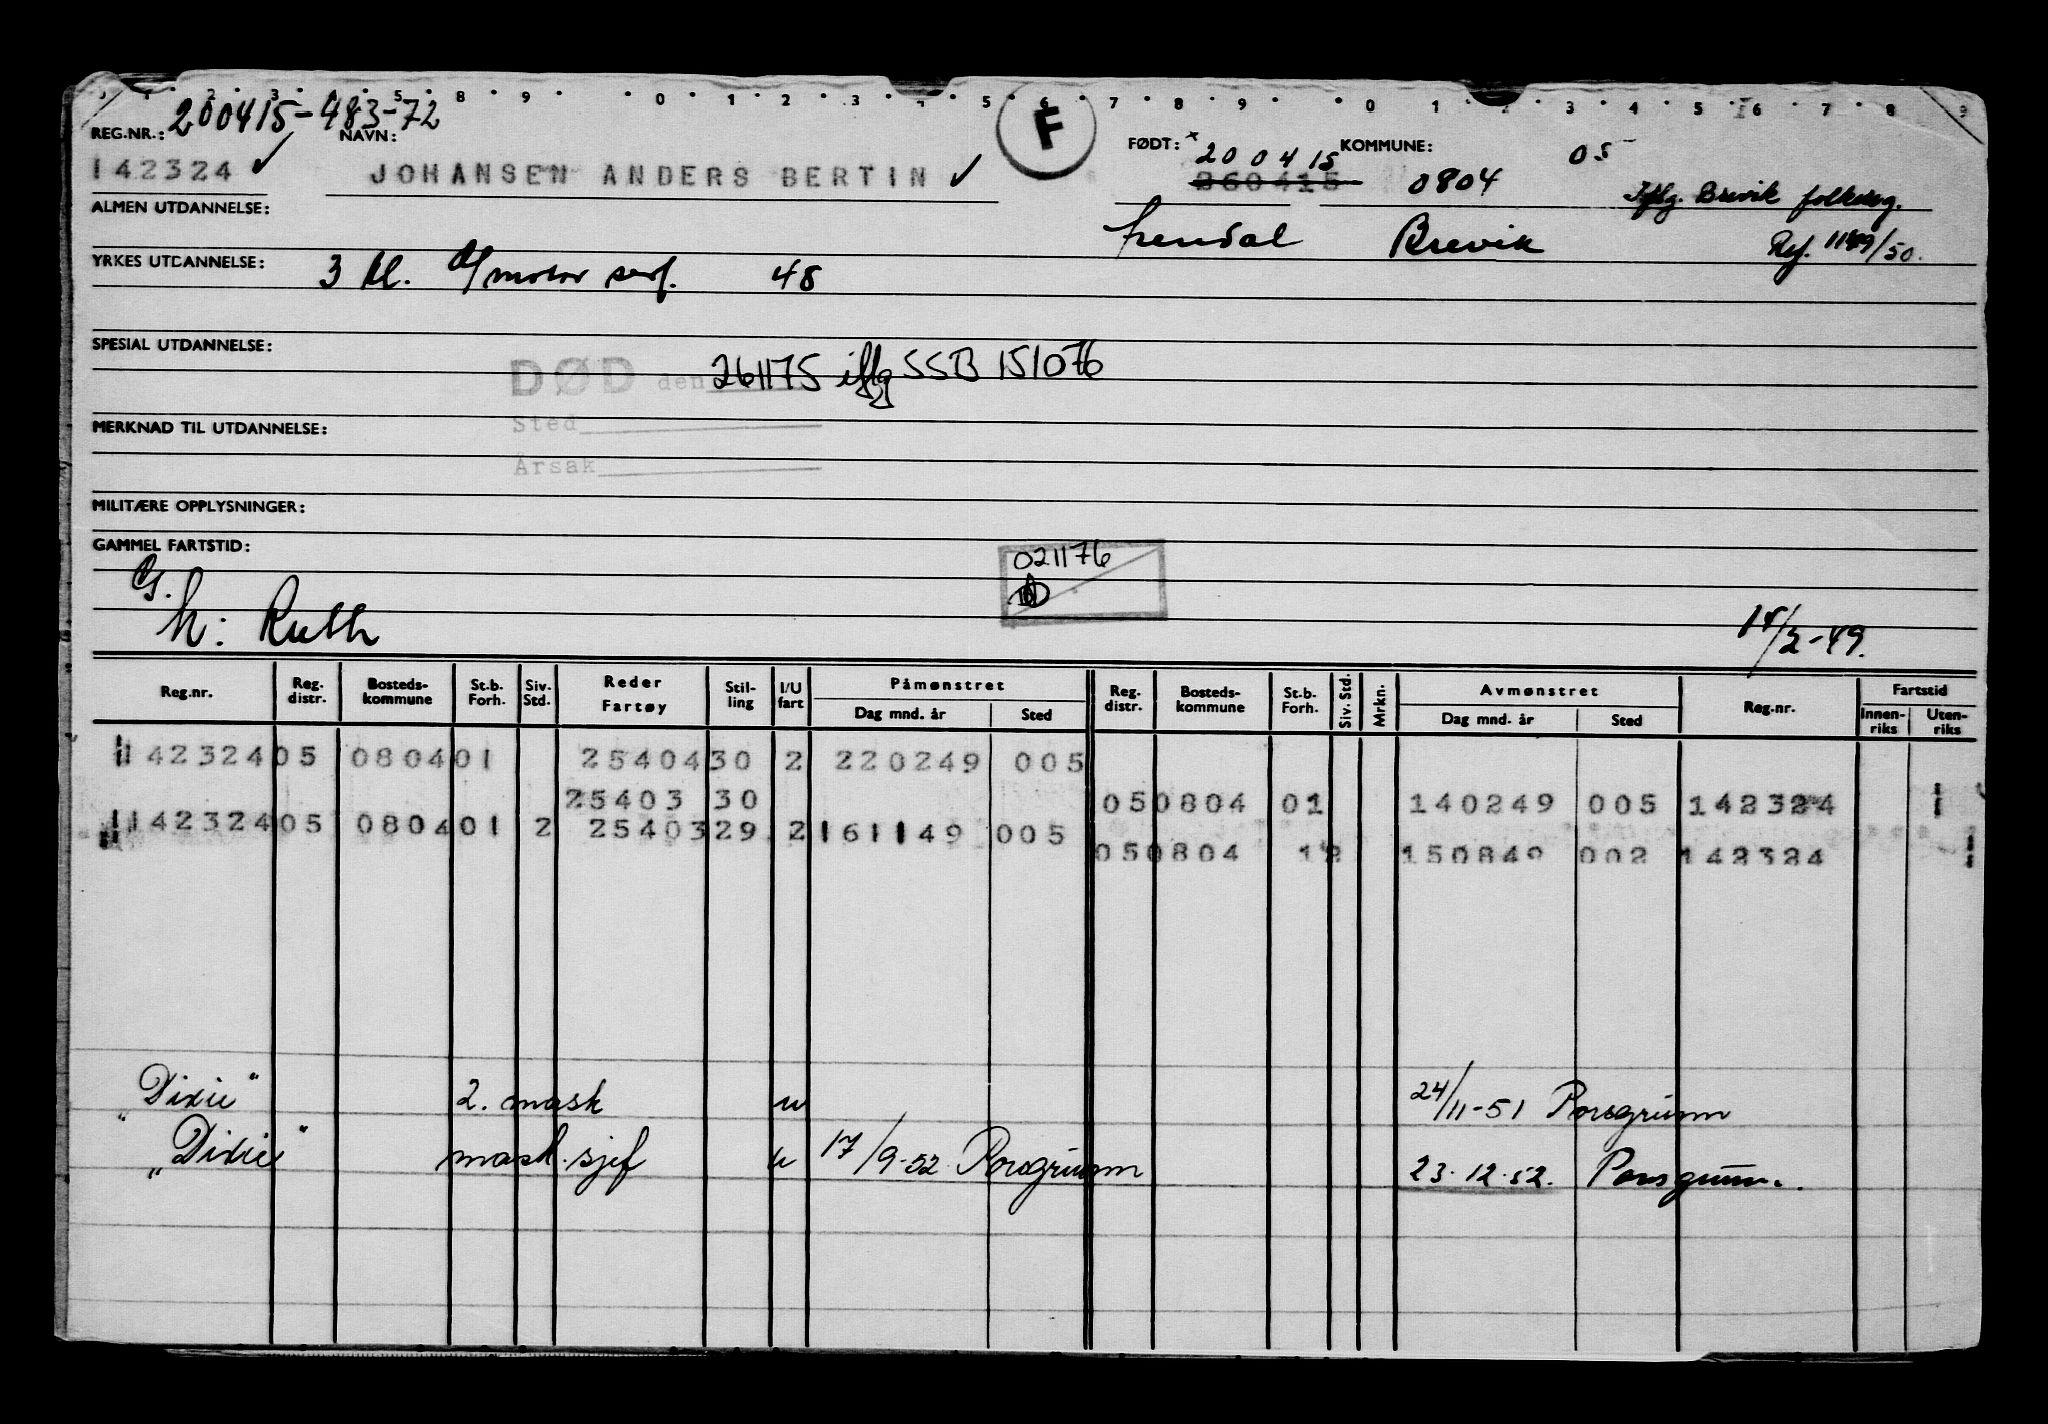 200415-483-72
REG.NR.: NAVN: F FØDT: 200415 KOMMUNE: 05
142324 JOHANSEN ANDERS BERTIN 260415 0804 Brevik
ALMEN UTDANNELSE: Brevik Ref. /50.
YRKES UTDANNELSE: 3 kl. motor 48
SPESIAL UTDANNELSE:
DØD den 261175 iflg SSB 151076
Sted
MERKNAD TIL UTDANNELSE:
Årsak
MILITÆRE OPPLYSNINGER:
GAMMEL FARTSTID: 021176
G.
h: Ruth 14/2-49.
Reg.nr. Reg. distr. Bosteds-kommune St.b. Forh. Siv. Std. Reder Fartøy Stil-ling I/U fart Påmønstret Dag mnd. år Sted Reg. distr. Bosteds-kommune St.b. Forh. Siv. Std. Mrkn. Avmønstret Dag mnd. år Sted Reg.nr. Fartstid Innen-riks Uten-riks
142324 05 0804 01 25404 30 2 220249 005
25403 30 05 0804 01 140249 005 142324 1
142324 05 0804 01 2 25403 29 2 161149 005
05 0804 1 2 150849 002 142324 1
"Dixie" 2. mask u 24/11-51 Porsgrunn
"Dixie" mask.sjef u 17/9-52 Porsgrunn 23.12.52. Porsgrunn.